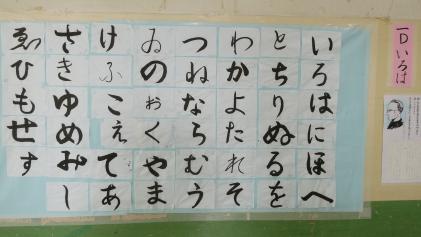 いろはにほへ
とちりぬるを
わかよたれそ
つねならむう
ゐのおくやま
けふこえてあ
さきゆめみし
ゑひもせす
一D いろは